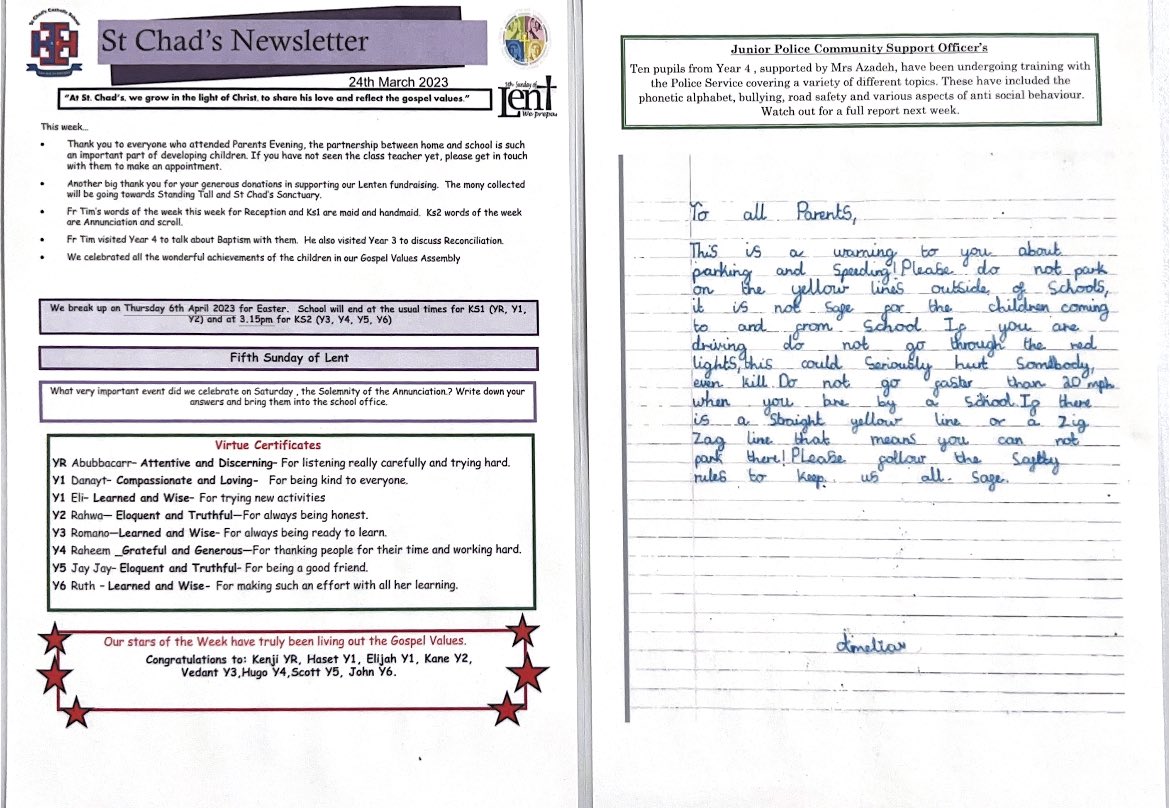 St Chad's Catholic School
St Chad's Newsletter
24th March 2023
"At St. Chad's, we grow in the light of Christ, to share his love and reflect the gospel values."
Sunday of
Lent
We prepare
This week…
• Thank you to everyone who attended Parents Evening, the partnership between home and school is such
an important part of developing children. If you have not seen the class teacher yet, please get in touch
with them to make an appointment.
• Another big thank you for your generous donations in supporting our Lenten fundraising. The mony collected
will be going towards Standing Tall and St Chad's Sanctuary.
• Fr Tim's words of the week this week for Reception and Ks1 are maid and handmaid. Ks2 words of the week
are Annunciation and scroll.
• Fr Tim visited Year 4 to talk about Baptism with them. He also visited Year 3 to discuss Reconciliation.
• We celebrated all the wonderful achievements of the children in our Gospel Values Assembly
We break up on Thursday 6th April 2023 for Easter. School will end at the usual times for KS1 (YR, Y1,
Y2) and at 3.15pm for KS2 (Y3, Y4, Y5, Y6)
Fifth Sunday of Lent
What very important event did we celebrate on Saturday , the Solemnity of the Annunciation.? Write down your
answers and bring them into the school office.
Virtue Certificates
YR Abubbacarr- Attentive and Discerning- For listening really carefully and trying hard.
Y1 Danayt- Compassionate and Loving- For being kind to everyone.
Y1 Eli- Learned and Wise- For trying new activities
Y2 Rahwa- Eloquent and Truthful—For always being honest.
Y3 Romano—Learned and Wise- For always being ready to learn.
Y4 Raheem _Grateful and Generous—For thanking people for their time and working hard.
Y5 Jay Jay- Eloquent and Truthful- For being a good friend.
Y6 Ruth - Learned and Wise- For making such an effort with all her learning.
Our stars of the Week have truly been living out the Gospel Values.
Congratulations to: Kenji YR, Haset Y1, Elijah Y1, Kane Y2,
Vedant Y3,Hugo Y4,Scott Y5, John Y6.
Junior Police Community Support Officer's
Ten pupils from Year 4 , supported by Mrs Azadeh, have been undergoing training with
the Police Service covering a variety of different topics. These have included the
phonetic alphabet, bullying, road safety and various aspects of anti social behaviour.
Watch out for a full report next week.
To all Parents,
This is a warning to you about
parking and Speeding! Please do not park
on the yellow lines outside of Schools,
it is not safe for the children coming
to and from School If you are
driving do not go through the red
lights, this could Seriously hurt Somebody,
even kill. Do not go faster than 20 mph
when you are by a School. If there
is a Straight yellow line or a Zig
Zag line that means you can not
park there! Please follow the Saftey
rules to keep us all safe.
Amelia